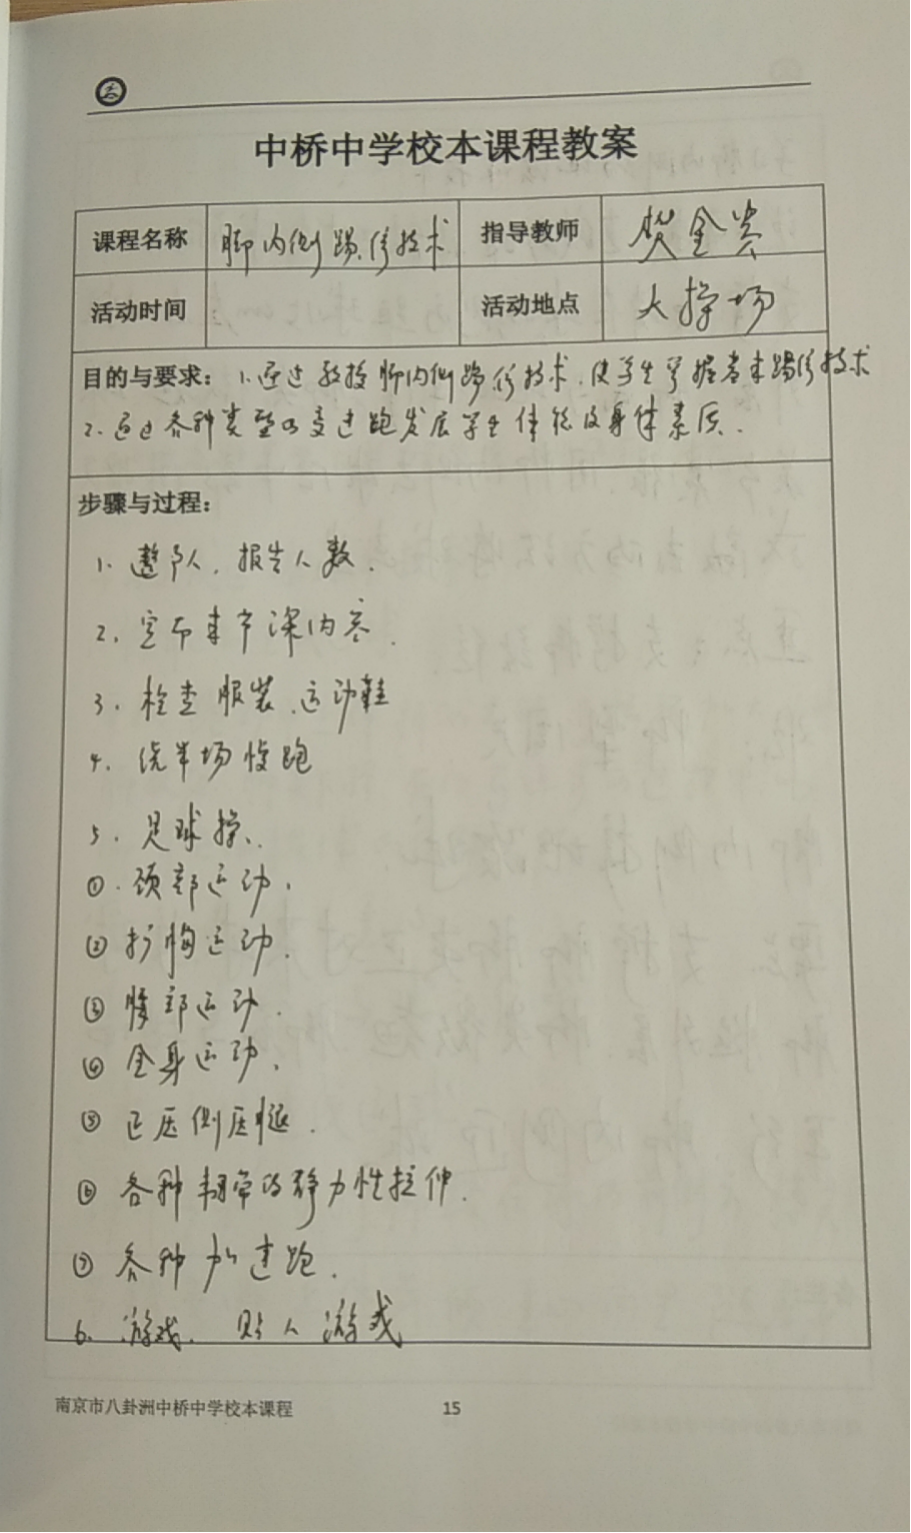 中桥中学校本课程教案
课程名称 脚内侧踢传技术 指导教师 贺金贵
活动时间 活动地点 大操场
目的与要求：1.通过教授脚内侧踢传技术，使学生掌握者本踢传技术
2.通过各种类型的变速跑发展学生体能及身体素质.
步骤与过程：
1. 整队，报告人数.
2. 宣布本节课内容.
3. 检查服装、运动鞋
4. 绕半场慢跑
5. 足球操、
① 颈部运动.
② 扩胸运动.
③ 腰部运动.
④ 全身运动.
⑤ 正压侧压腿.
⑥ 各种韧带的静力性拉伸.
⑦ 各种加速跑.
6. 游戏. 贴人游戏
南京市八卦洲中桥中学校本课程 15